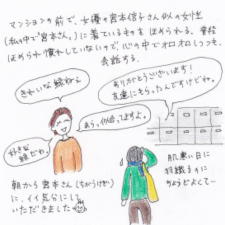 マンションの前で、女優の宮本信子さん似の女性
(私の中で宮本さん。)に着ているものをほめられる。普段
ほめられ慣れしていないので心の中でオロオロしつつ、
会話する。
きれいな緑ねぇ
ありがとうございます!
友達にもらったんですけどね。
あら、似合ってますよ。
好きな緑だわ。
朝から宮本さん(ちがうけど)
に、イイ気分にして
いただきました
肌寒い日に
羽織るのに
ちょうどよくて…